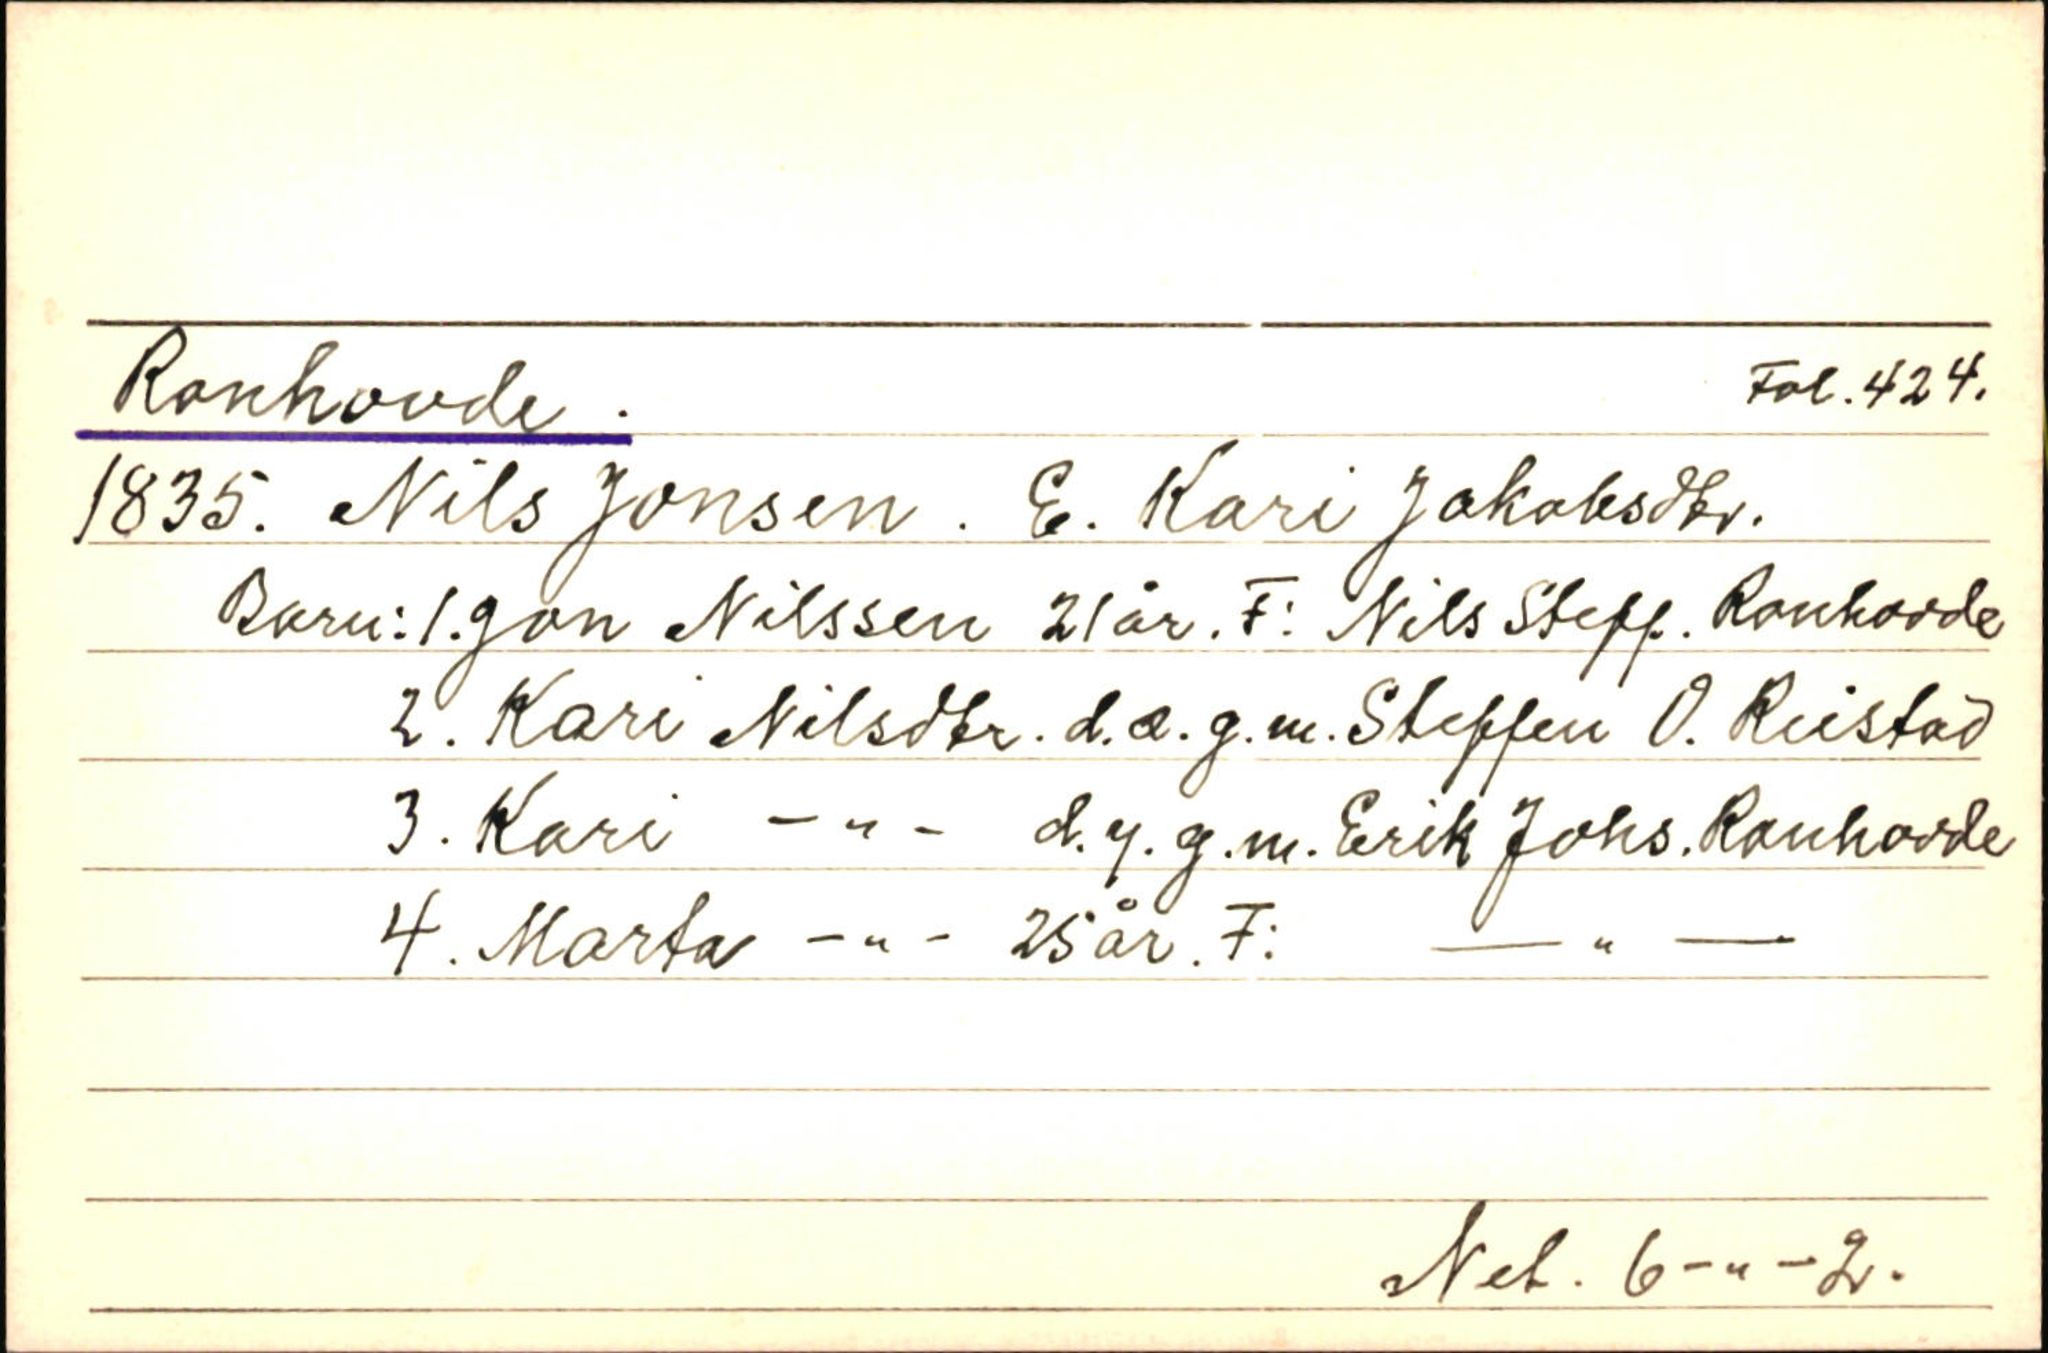 Ronhovde. Fol. 424.
1835. Nils Jonsen. E. Kari Jakobsdtr.
Barn: 1. Jon Nilssen 21 år. F: Nils Steff. Ronhovde
2. Kari Nilsdtr. d.e. g.m. Steffen O. Reistad
3. Kari -"- d.y. g.m. Erik Johs. Ronhovde
4. Marta -"- 25 år. F: -"-
Net. 6-"-2.